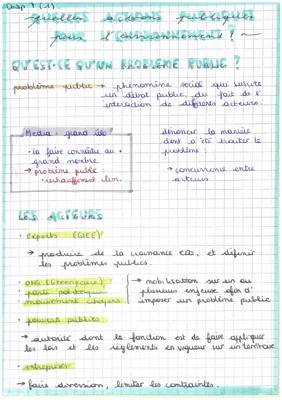 Chap 9 (1)
quelles actions publiques
pour l'environnement ?
QU'EST-CE QU'UN PROBLÈME PUBLIC ?
problème public → phénomène social qui suscite
un débat public, du fait de l'
interaction de différents acteurs.
Media : grand rôle !
• le faire connaître au +
grand nombre
→ problème public
réchauffement clim.
dénoncer la manière
dont a été traité le
problème :
→ concurrence entre
acteurs
LES ACTEURS
• experts (GIEC)
→ produire de la connaissance et définir
les problèmes publics.
• ONG (Greenpeace)
partis politiques
mouvements citoyens
→ mobilisation sur un ou
plusieurs enjeux afin d'
imposer un problème public
• pouvoirs publics
→ autorité dont la fonction est de faire appliquer
les lois et les règlements en vigueur sur un territoire
• entreprises
→ faire diversion, limiter les contraintes.